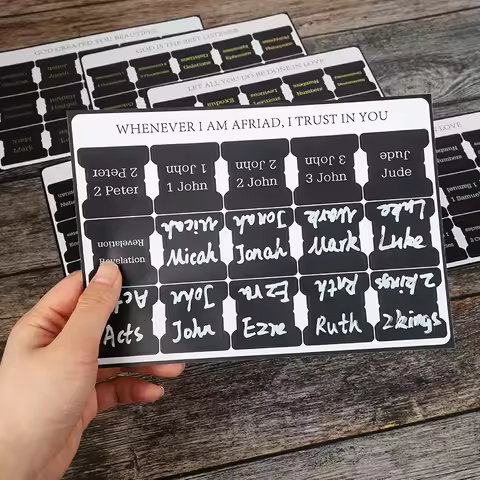 GOD CREATED YOU BEAUTIFUL
GOD IS THE BEST LISTENER
LET ALL YOU DO BE DONE IN LOVE
LOVE
WHENEVER I AM AFRIAD, I TRUST IN YOU
2 Peter 1 John 2 John 3 John Jude
2 Peter 1 John 2 John 3 John Jude
Revelation Micah Jonah Mark Luke
Revelation Micah Jonah Mark Luke
Acts John Ezra Ruth 2kings
Acts John Ezre Ruth 2kings